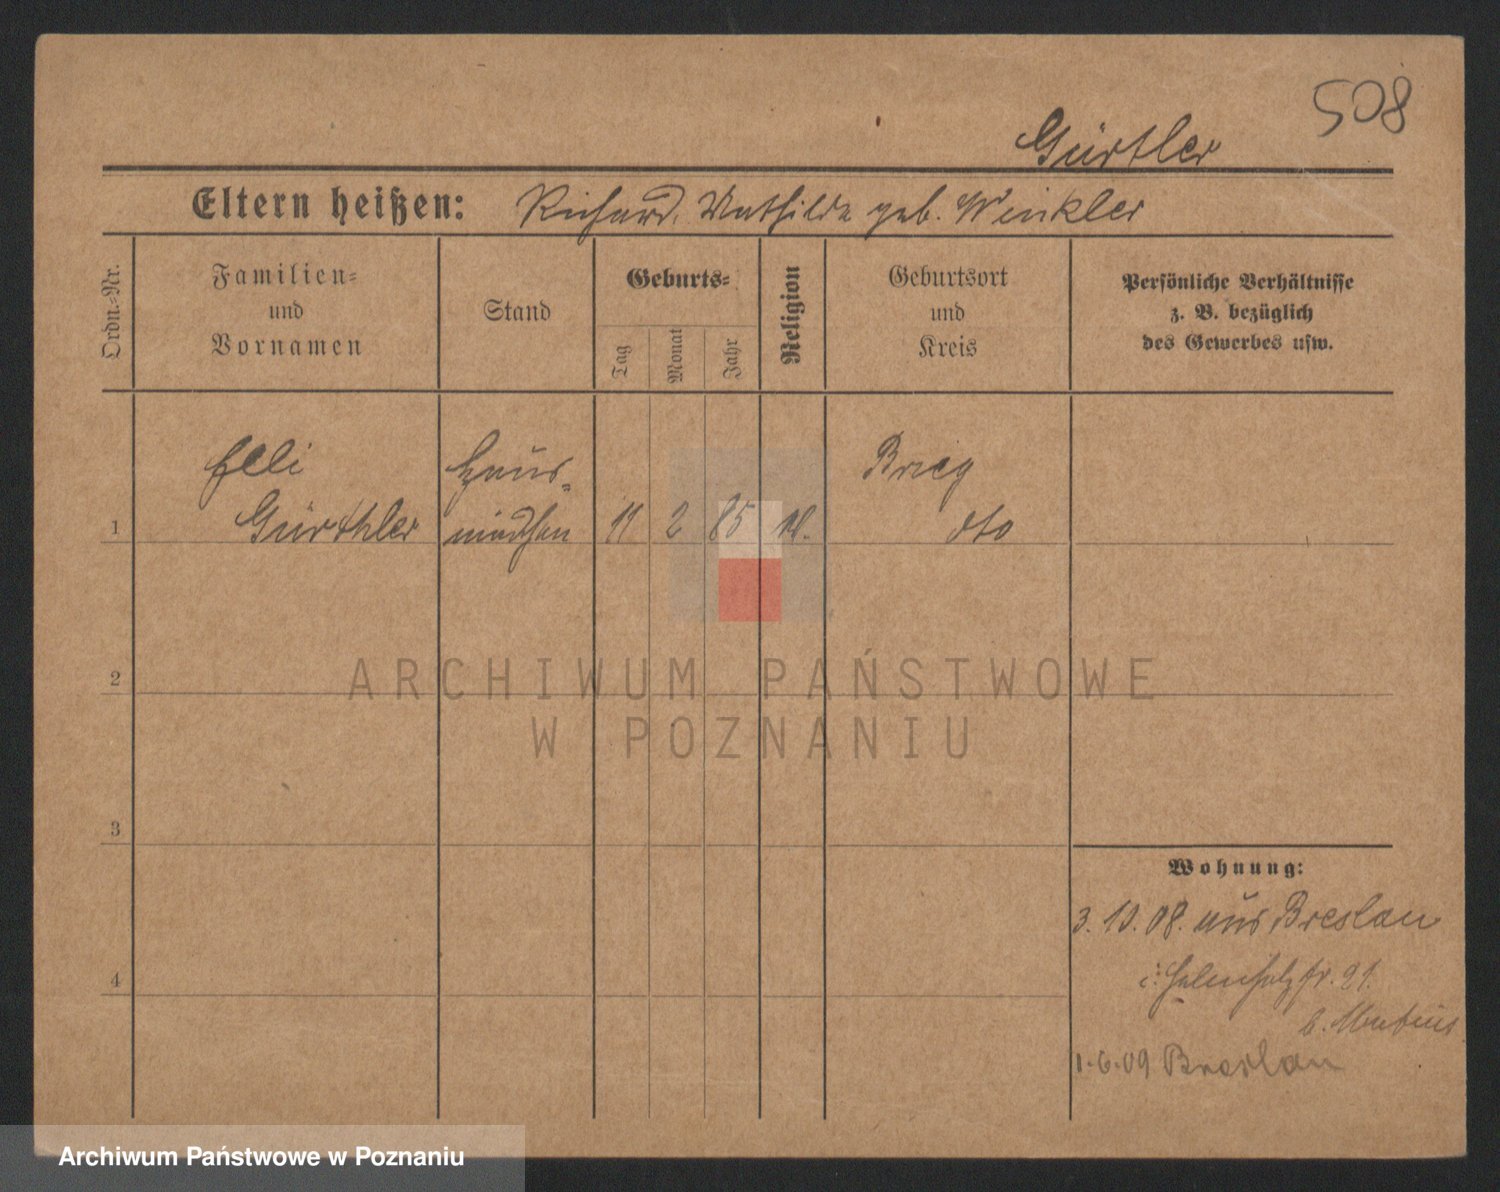 508
Gürtler
Eltern heißen: Richard, Mathilde geb. Winkler
Ordn.=Nr.
Familien=
und
Vornamen
Stand
Geburts=
Tag
Monat
Jahr
Religion
Geburtsort
und
Kreis
Persönliche Verhältnisse
z. B. bezüglich
des Gewerbes usw.
Elli
Haus-
Brieg
1 Gürthler mädchen 11 2 85 dto
2
3
4
ARCHIWUM PAŃSTWOWE
W POZNANIU
Wohnung:
3. 10. 08. aus Breslau
21.
b.
1.6.09 Breslau
Archiwum Państwowe w Poznaniu